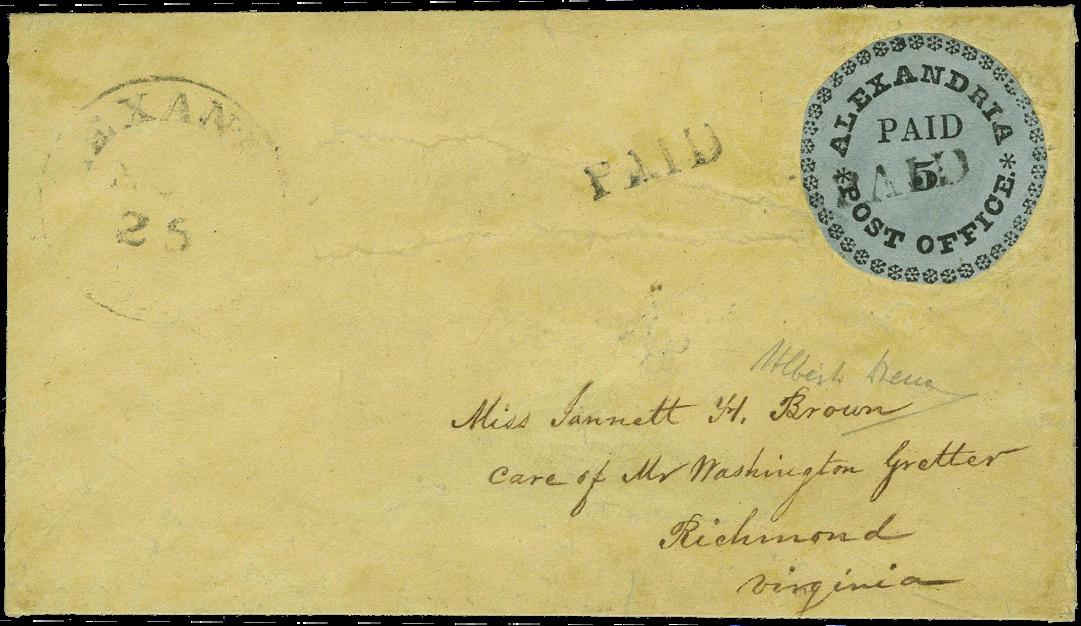 EXAN
25
PAID
ALEXANDRIA
PAID
5.
PAID
* POST OFFICE. *
Miss Jannett H. Brown
Care of Mr Washington Gretter
Richmond
Virginia